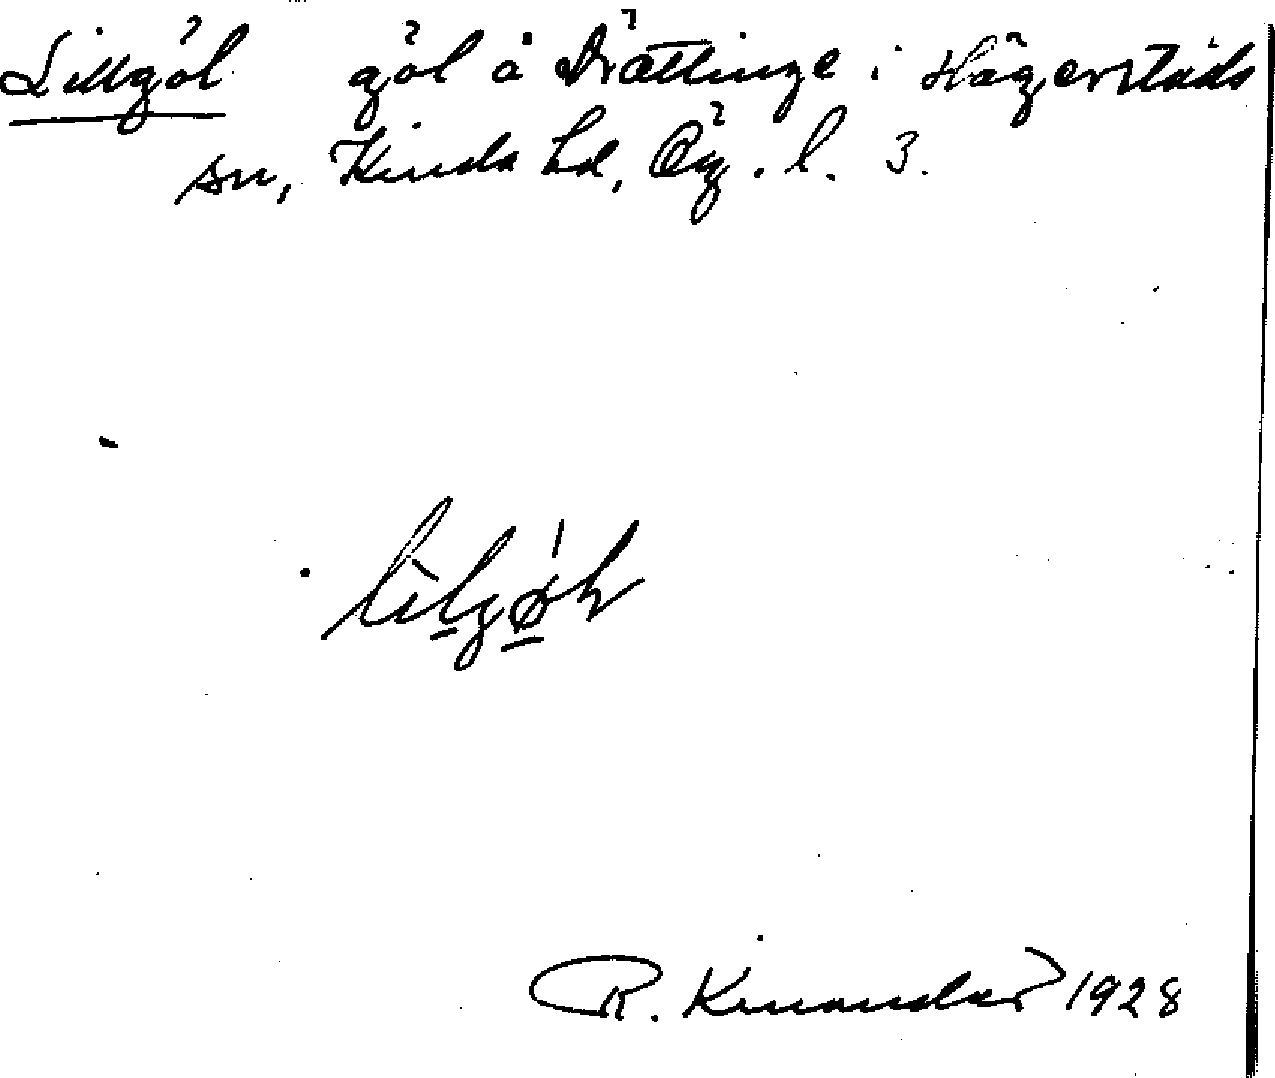 Lillgöl göl å Drättinge i Hägerstads
sn, Kinda hd, Ög. l. 3.
R. Kinander 1928